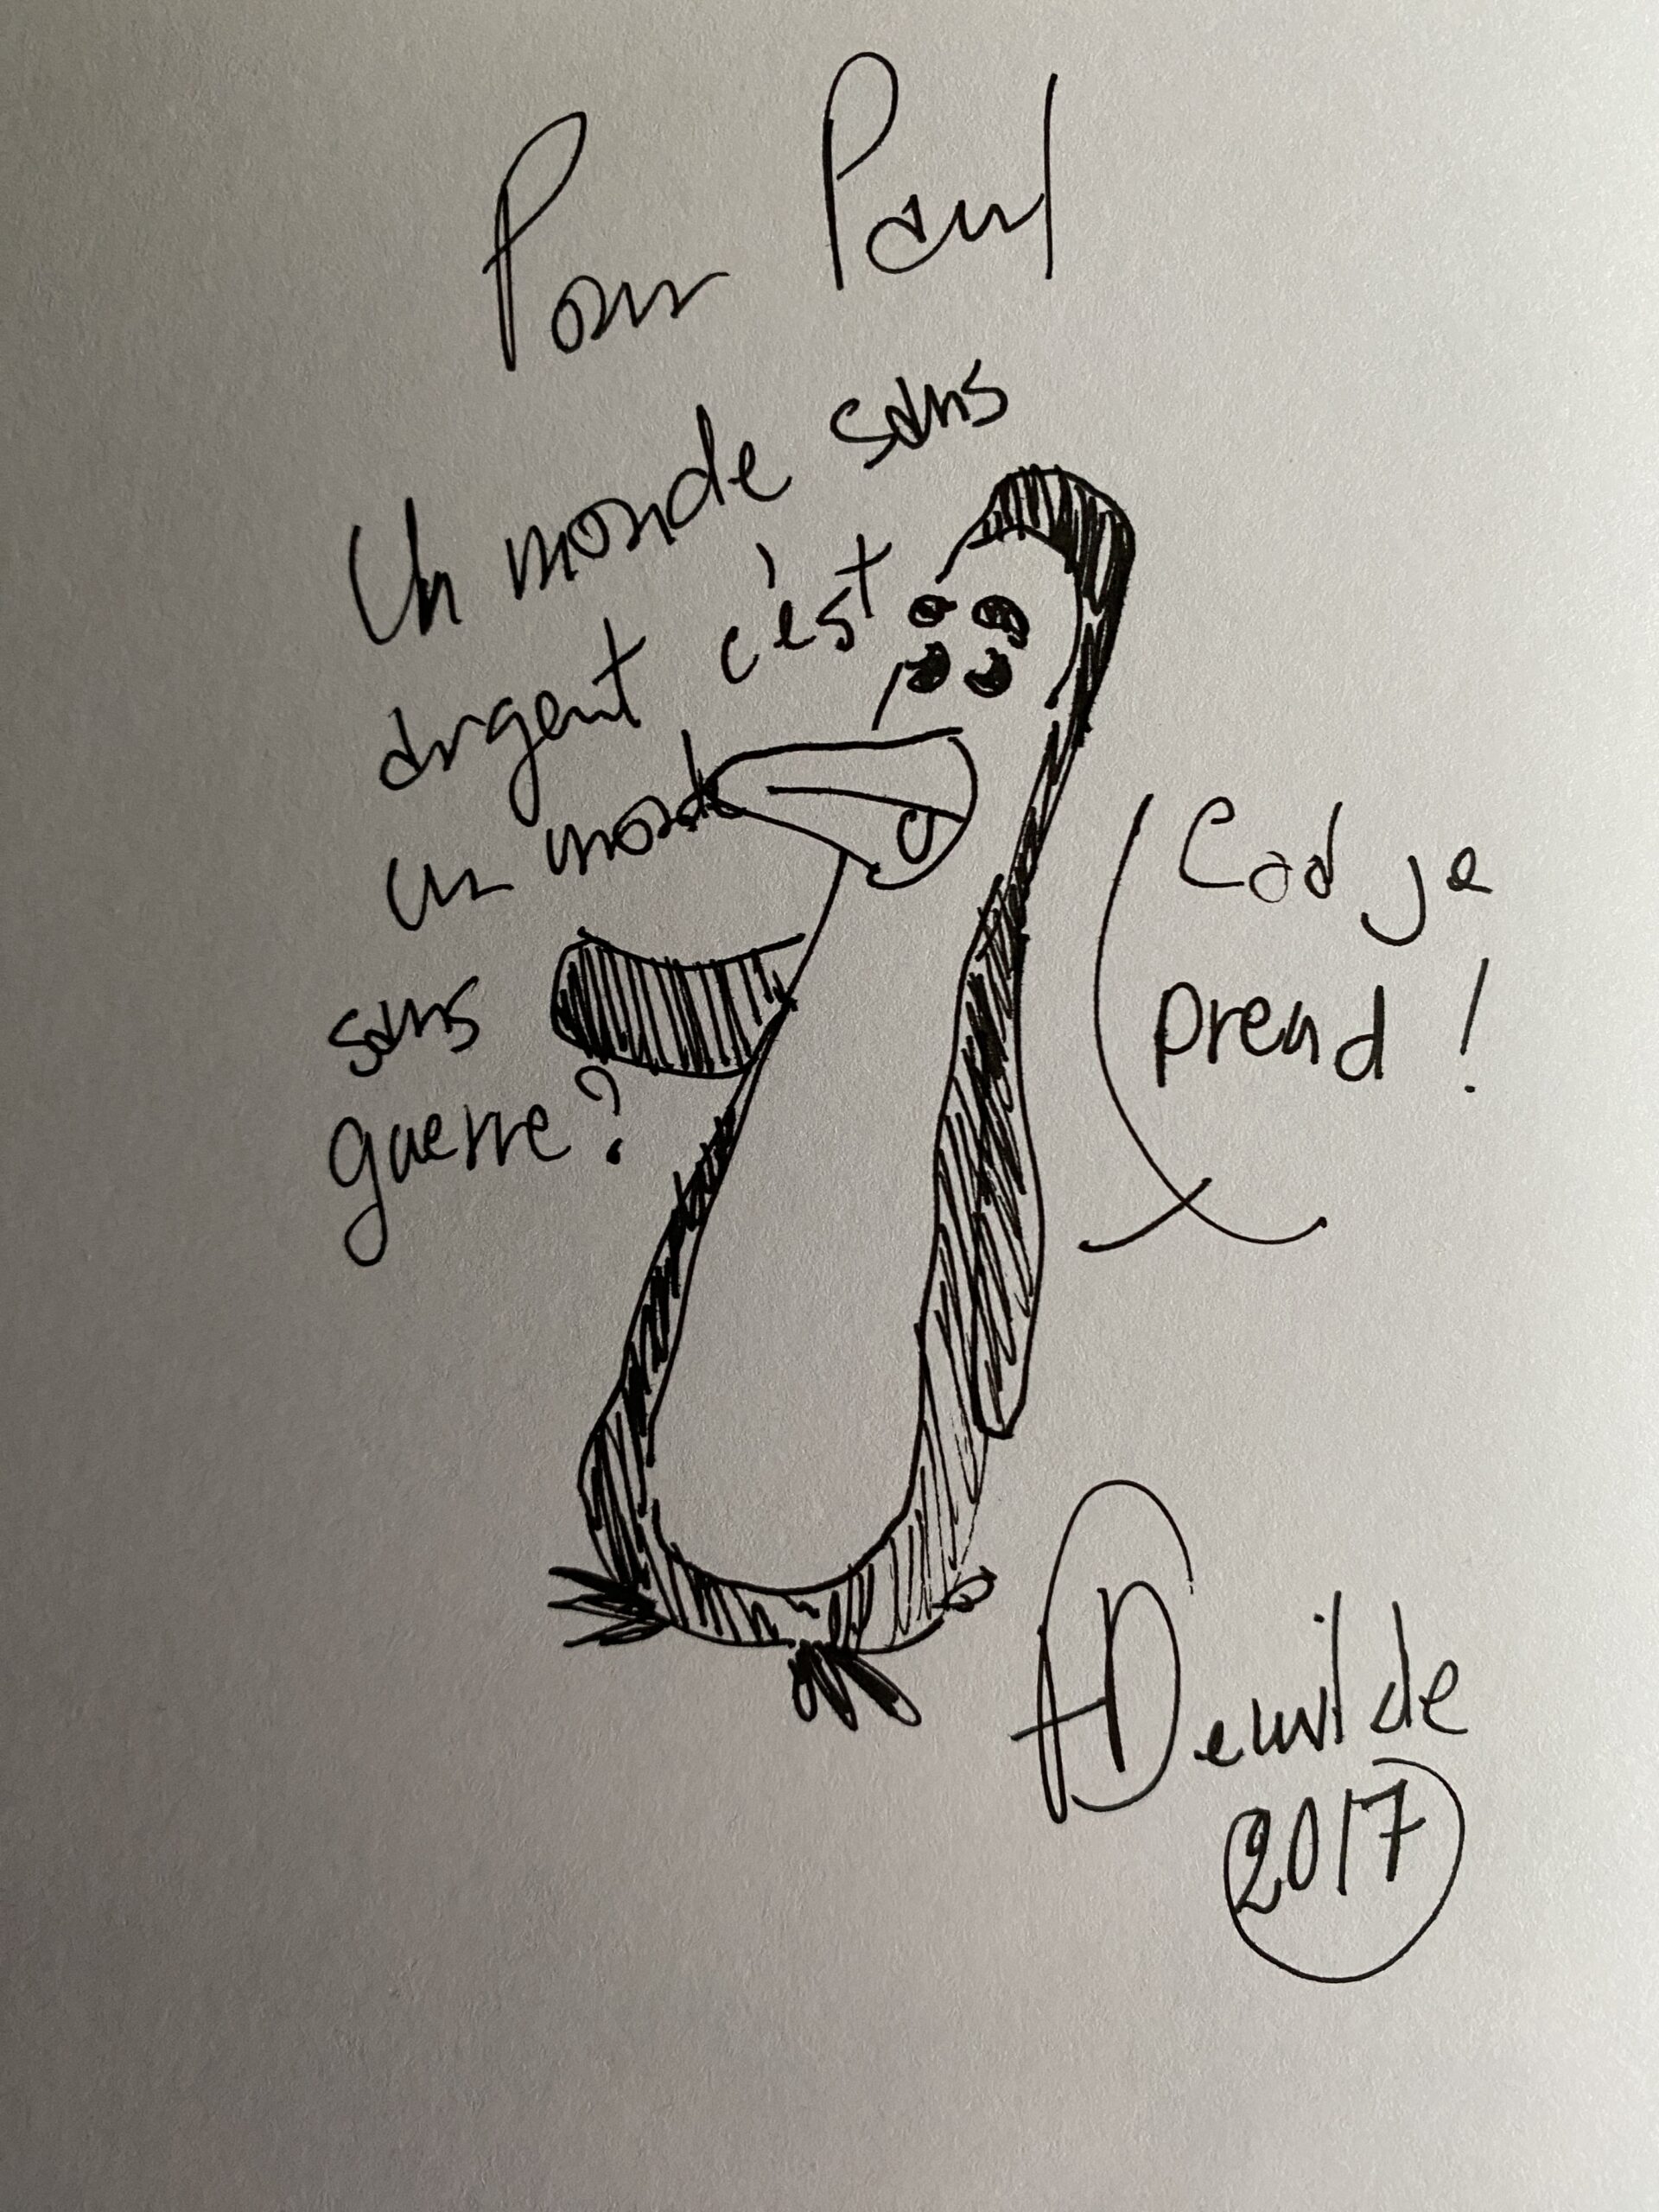 Pour Paul
Un monde sans
argent c'est
un monde
sans
guerre?
Cad je
prend !
Dewilde
2017